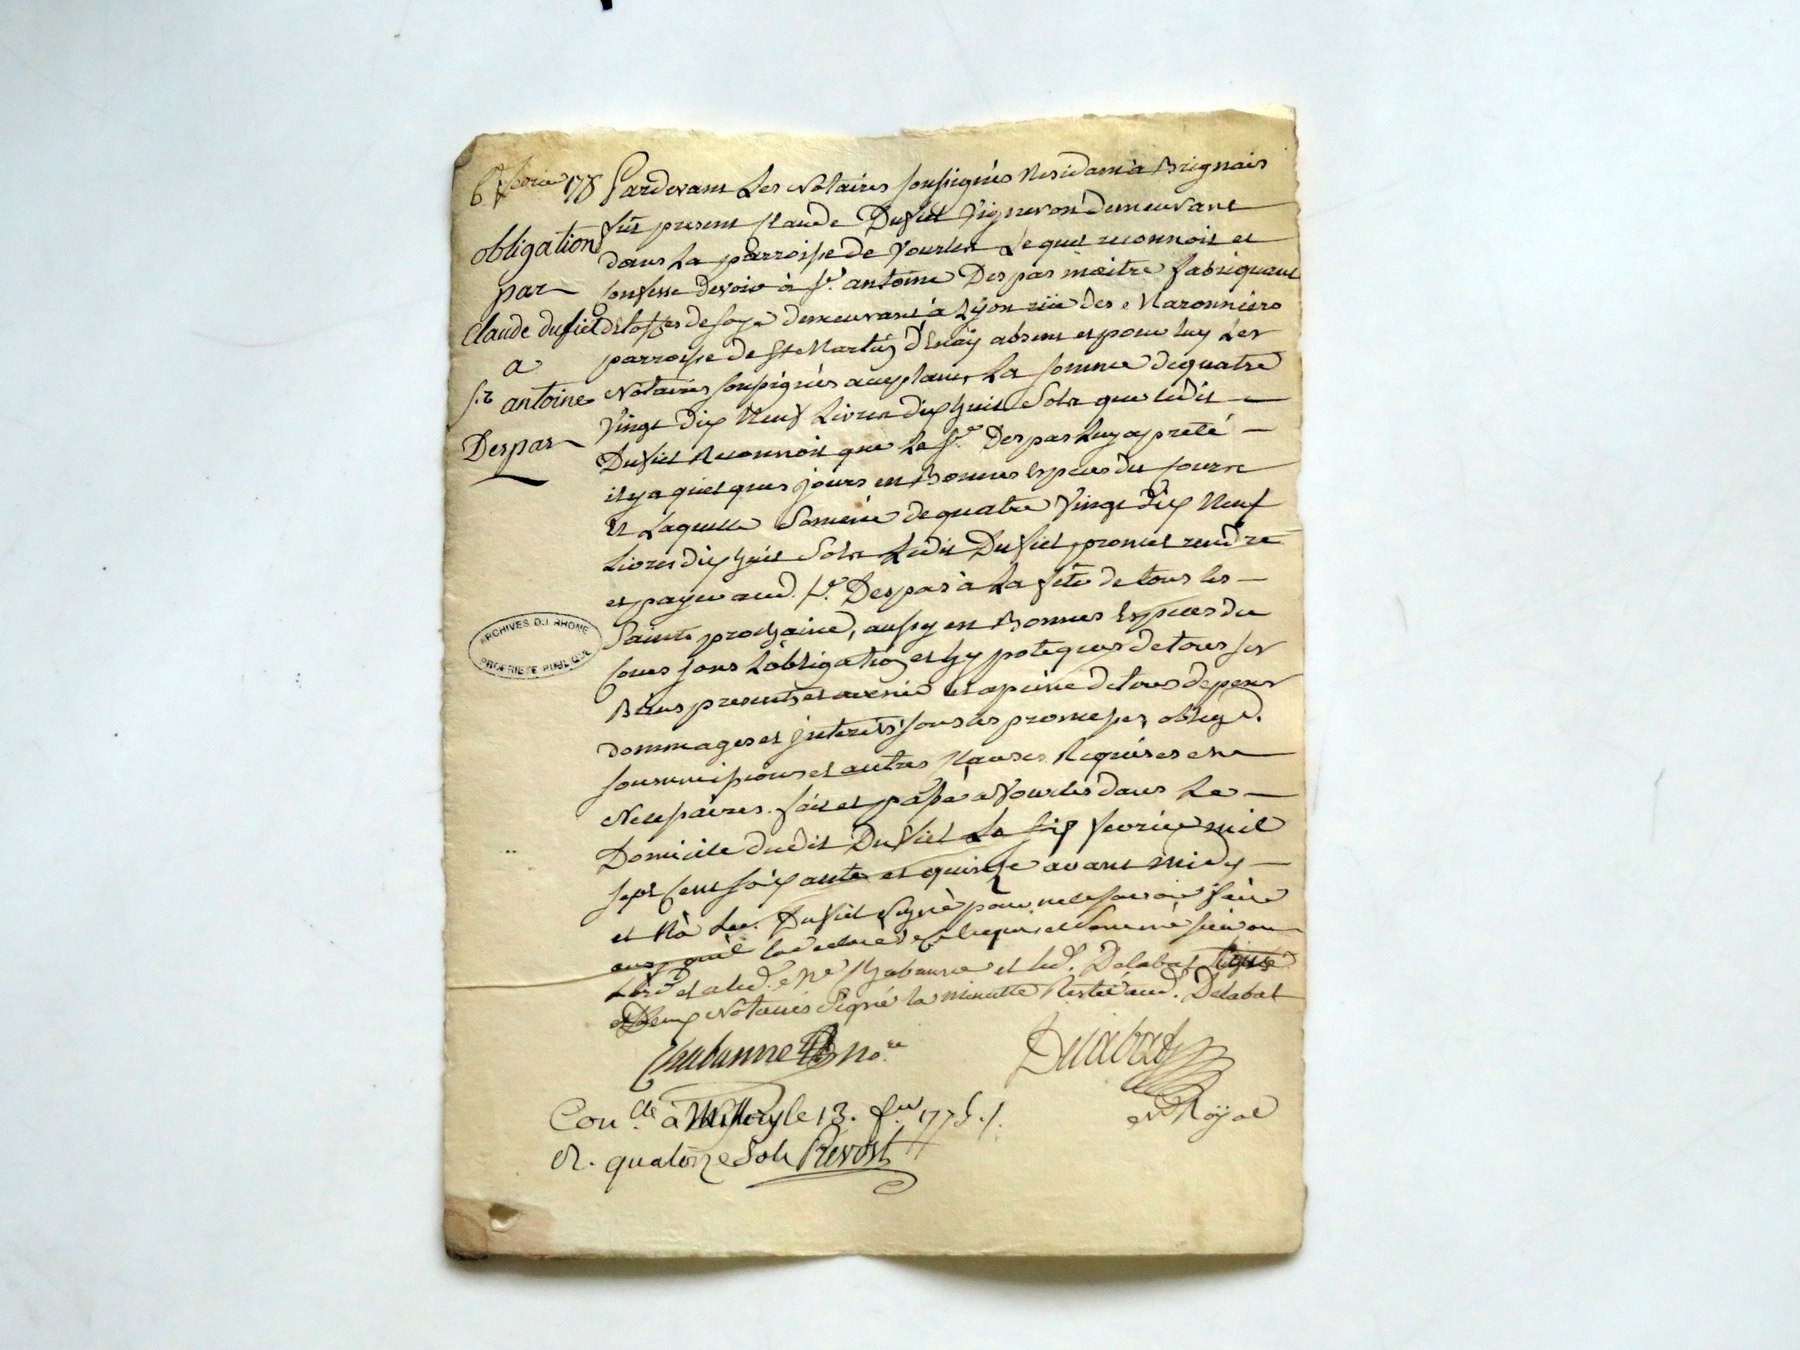 6 fevrier 1775
obligation
par
Claude dufiet
a
s.r antoine
Despar
Pardevant Les Notaires soussignés Residant à Brignais
fut present Claude Dufiet Vigneron demeurant
dans La parroisse de Vourles Lequel reconnoit et
confesse devoir à s.r antoine Despar maitre fabriquant
d'Etoffes de soye demeurant à Lÿon rüe des Maronniers
parroisse de St Martin d'Enay absent et pour luy Les
Notaires soussignés acceptants La somme de quatre
Vingt Dix Neuf Livres dix huit Sols que ledit
Dufiet Reconnoit que Le s.r Despar Luy a preté
il y a quelques jours en Bonnes Especes du cours
et Laquelle Somme de quatre Vingt Dix Neuf
Livres dix huit Sols Ledit Dufiet promet rendre
et payer aud. s.r Despar à La fête de tous les
Saints prochaine, aussy en Bonnes Especes du
cours sous L'obligation et hypoteques de tous ses
Biens presents et avenir et a peine de tous depens
dommages et jnterets sous les promesses, obliga.
soumissions et autres Clauses Requises et
Necessaires. fait et passé a Vourles dans Le
Domicile dudit Dufiet Le six fevrier mil
sept cent soixante et quinze avant midy
et Na Led. Dufiet Signé pour ne le savoir faire
et led. Delabat
Deux Notaires Signé la minutte Restée aud. Delabat
Chabanne No.re
Delabat
N.re Röyal
Con.lé à Millery le 13. f.er 1775.
R. quatorze Sols Prevost
ARCHIVES DU RHONE
PROPRIETE PUBLIQUE